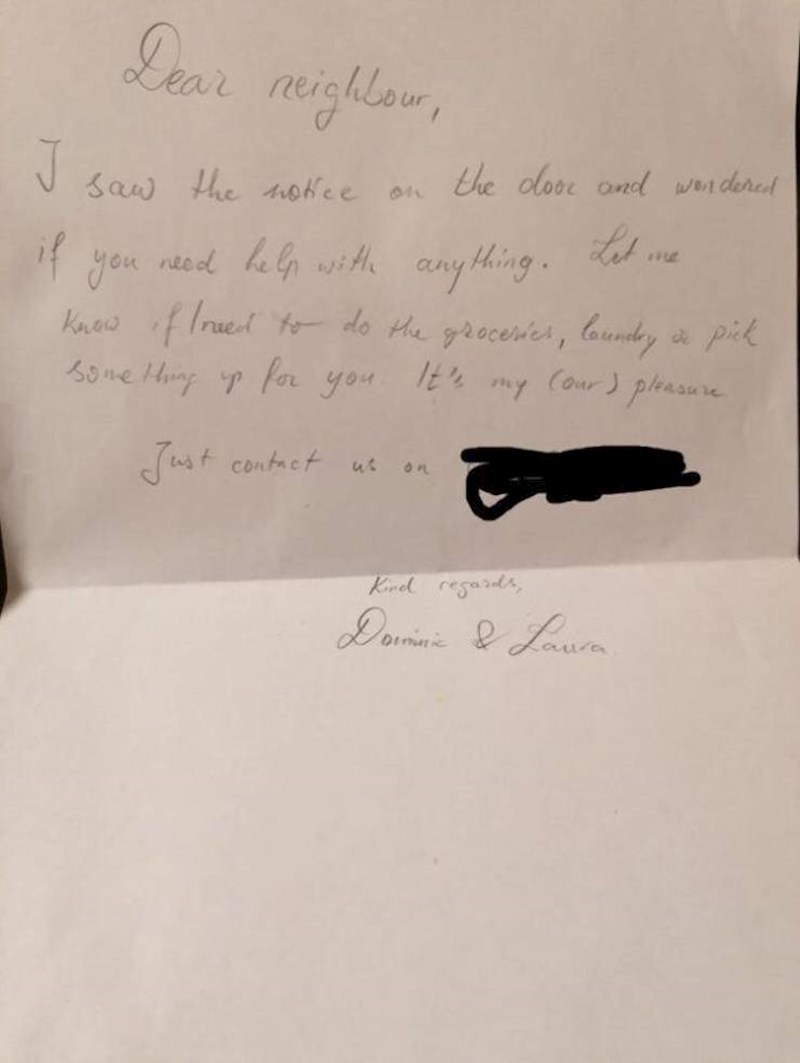 Dear neighbour,
I saw the notice on the door and wondered
if you need help with anything. Let me
know if I need to do the groceries, laundry or pick
something up for you. It's my (our) pleasure
Just contact us on
Kind regards,
Dominic & Laura